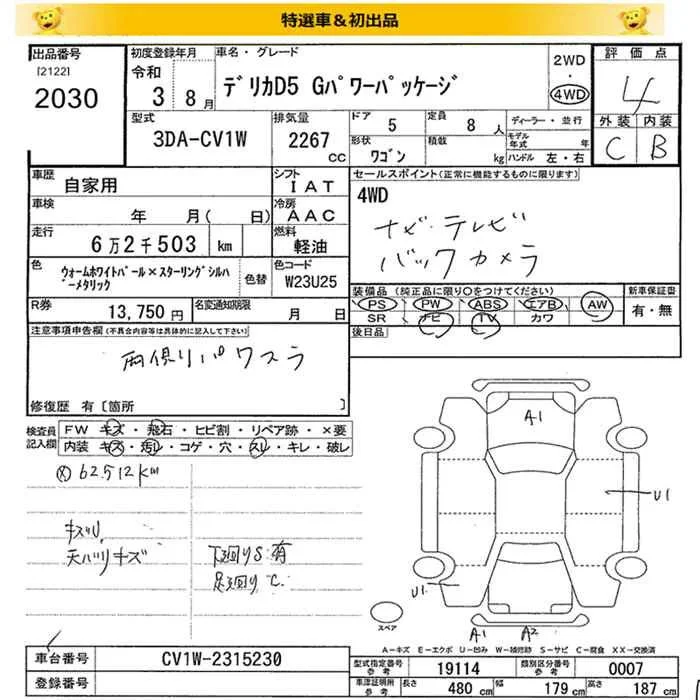 特選車＆初出品
出品番号
[2122]
2030
初度登録年月
令和
3年 8月
車名・グレード
デリカD5 Gパワーパッケージ
2WD
・
4WD
評価点
4
外装 内装
C B
型式
3DA-CV1W
排気量
2267
CC
ドア 5
定員 8人
ディーラー・並行
形状 ワゴン
積載 kg
モデル年式 年
ハンドル 左・右
車歴 自家用
シフト IAT
セールスポイント(正常に機能するものに限ります)
4WD
車検 年 月( 日)
冷房 AAC
ナビ・テレビ
走行 6万2千503 km
燃料 軽油
バックカメラ
色 ウォームホワイトパール×スターリングシルバーメタリック
色替
色コード W23U25
装備品 (純正品に限り○をつけてください)
新車保証書
PS PW ABS エアB AW
有・無
SR ナビ TV カワ
R券 13,750円
名変通知期限 月 日
後日品
注意事項申告欄(不具合内容等は具体的に記入して下さい)
両側リパワスラ
修復歴 有〔箇所 〕
検査員記入欄
FW キズ・飛石・ヒビ割・リペア跡・×要
内装 キズ・汚レ・コゲ・穴・スレ・キレ・破レ
62.512km
天バリキズ
下廻りS有
足廻りC.
A1
U1
U1
A1 A2
スペア
A－キズ E－エクボ U－凹み W－補修跡 S－サビ C－腐食 XX－交換済
車台番号 CV1W-2315230
登録番号
型式指定番号 参考 19114
類別区分番号 参考 0007
車検証明所 参考
長さ 480 cm 幅 179 cm 高さ 187 cm